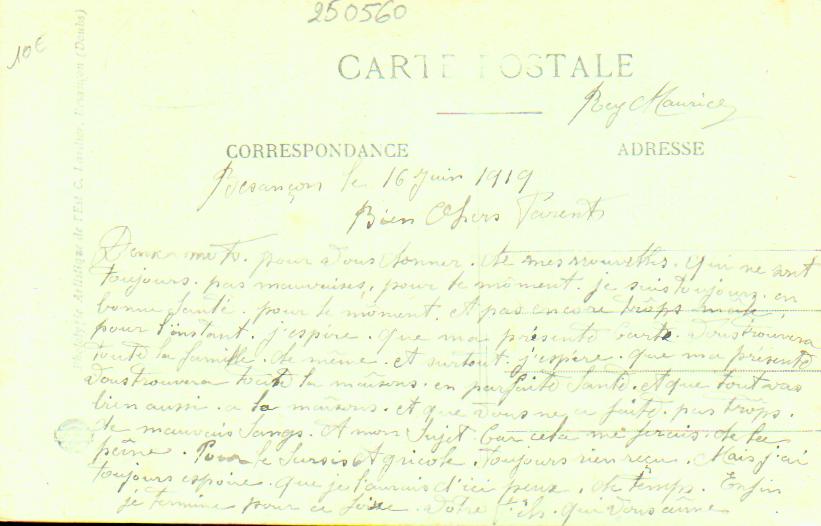 250560
10€
CARTE POSTALE
Rey Maurice
CORRESPONDANCE
ADRESSE
Besançon le 16 Juin 1919
Bien Chers Parents
Deux mots. pour vous donner. de mes nouvelles. qui ne sont
toujours. pas mauvaises, pour le môment. je suis toujours. en
bonne Santé. pour le môment. et pas encore trôps male
pour l'instant. j'espère. que ma présente Carte. vous trouvera
toute la famille. de même. et surtout. j'espère. que ma présente
vous trouvera toute la maisons. en parfaite Santé. et que tout vas
bien aussi. a la maisons. et que vous ne faite. pas trôps.
de mauvais Sangs. A mon Sujet. Car cela me ferais. de la
pêine. Pour le Sursis Agricole. toujours rien reçu. Mais j'ai
toujours espoire. que je l'aurais d'ici peux. de temps. Enfin
je termine pour ce Soire. Votre fils. qui vous aime
Phototypie Artistique de l'Est C. Lardier, Besançon (Doubs)